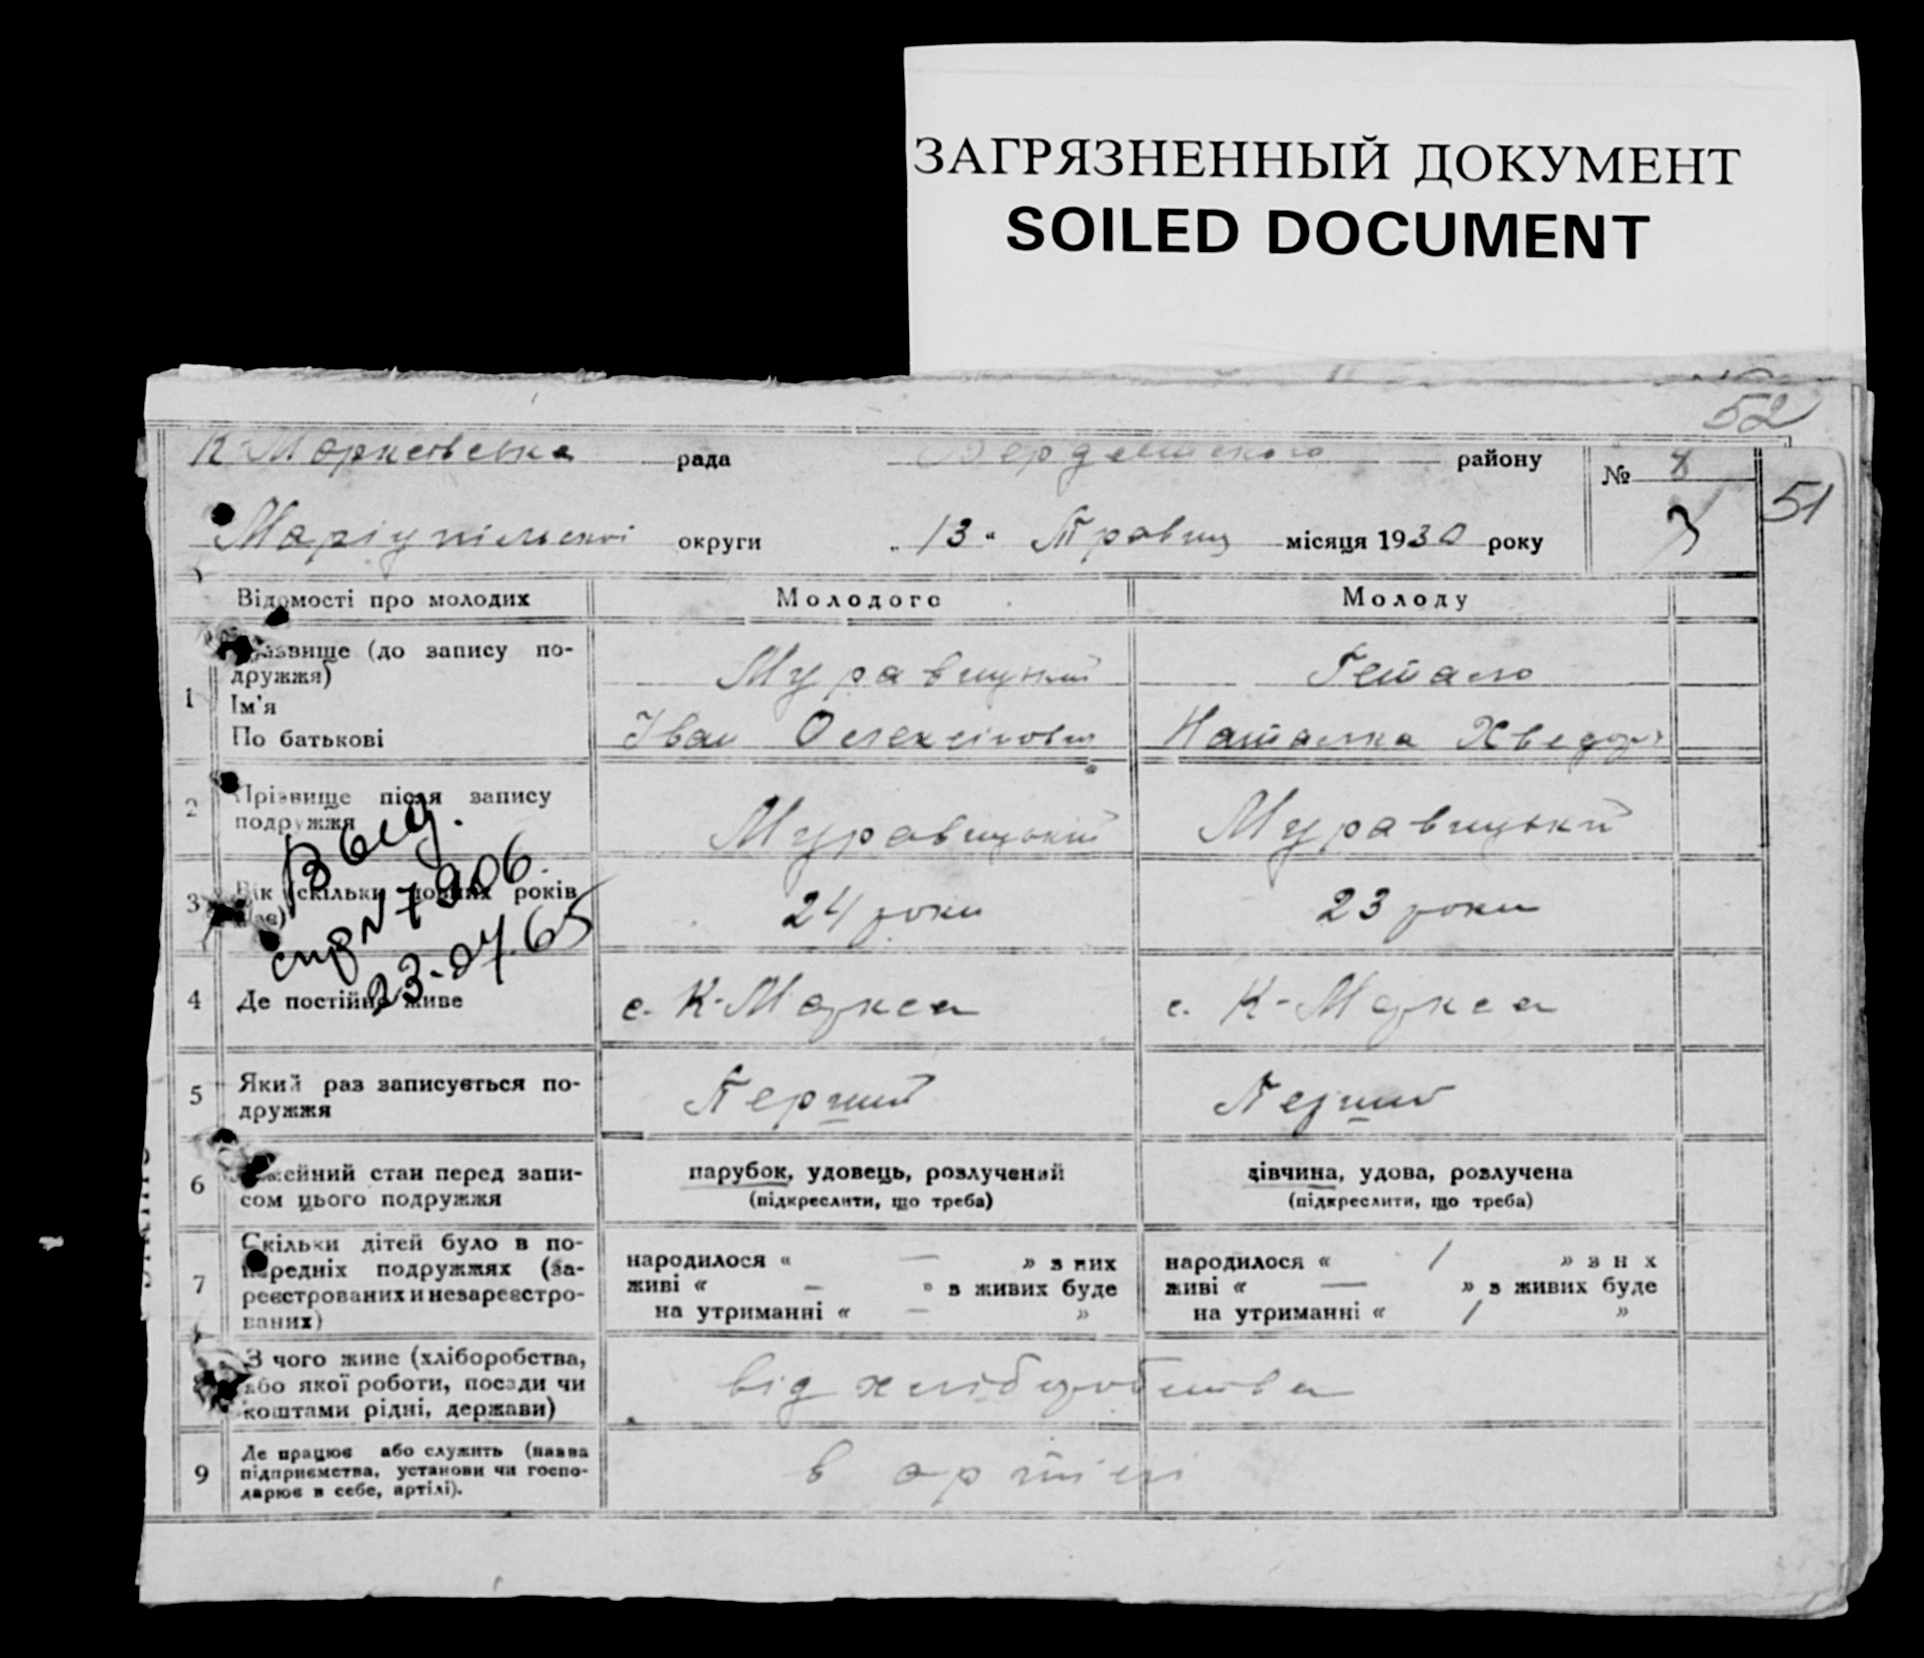 ЗАГРЯЗНЕННЫЙ ДОКУМЕНТ
SOILED DOCUMENT
52
К-Марксівська рада Бердянського району № 8
51
Маріупільської округи „13“ Травня місяця 1930 року 7
Відомості про молодих Молодого Молоду
1 Прізвище (до запису по-
дружжя) Муравицький
Ім'я
По батькові Іван Олексійович Наталка Хведор
2 Прізвище після запису
подружжя Муравицький Муравицький
Выд.
спр N 7906.
23-07.65
3 Вік (скільки повних років
має) 24 роки 23 роки
4 Де постійно живе с. К-Маркса с. К-Маркса
5 Який раз записується по-
дружжя Перший Перший
6 сімейний стан перед запи-
сом цього подружжя
парубок, удовець, розлучений дівчина, удова, розлучена
(підкреслити, що треба) (підкреслити, що треба)
7 Скільки дітей було в по-
передніх подружжях (за-
реєстрованих и незареєстро-
ваних)
народилося « — » з них народилося « / » з н х
живі « — » з живих буде живі « — » з живих буде
на утриманні « — » на утриманні « / »
З чого живе (хліборобства,
або якої роботи, посади чи
коштами рідні, держави) від хліборобства
9 Де працює або служить (назва
підприємства, установи чи госпо-
дарює в себе, артілі). в артілі